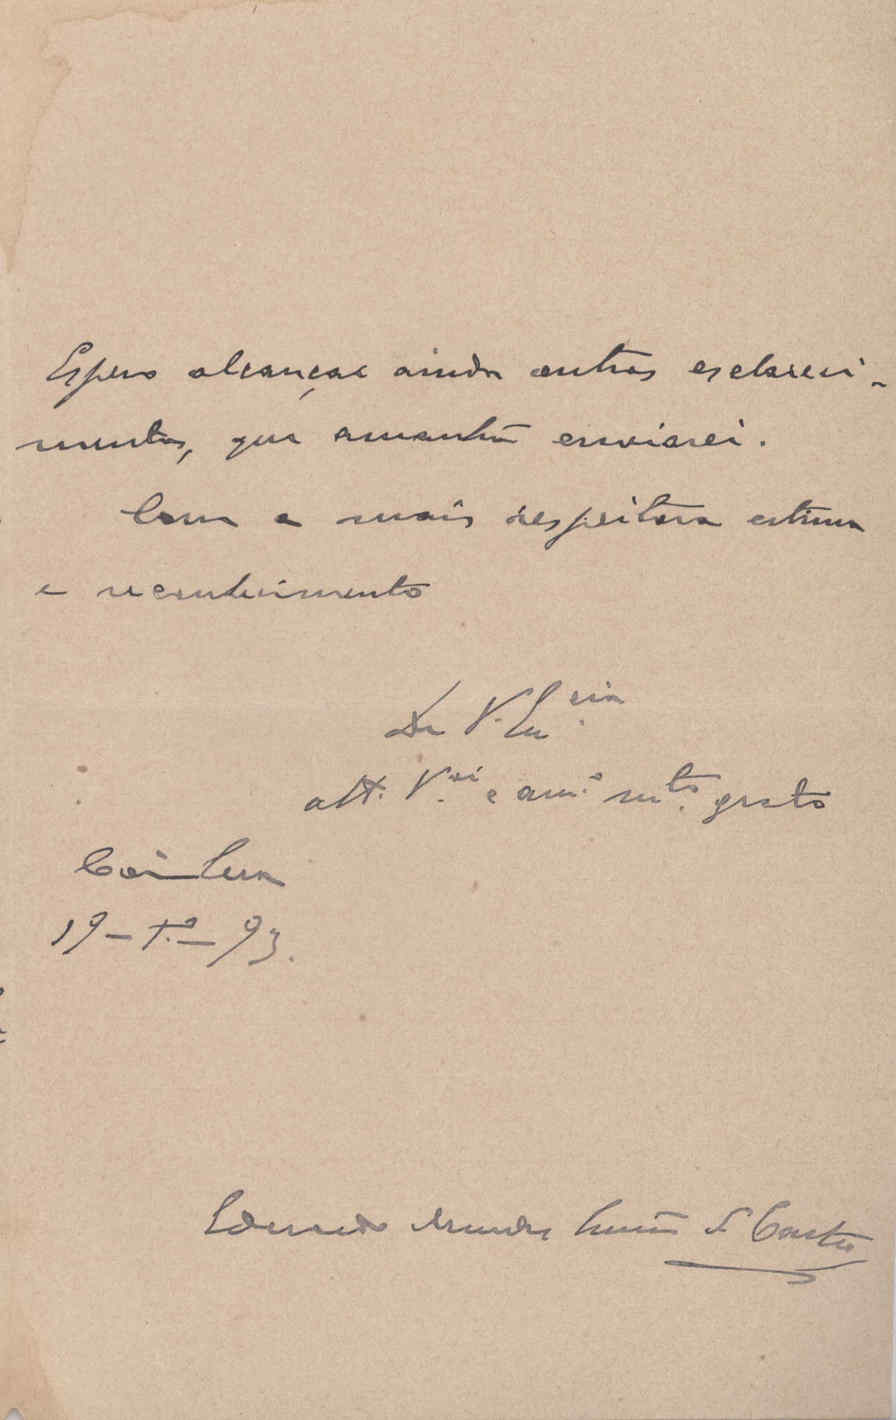 Espero alcançar ainda outros esclareci-
mentos, que amanhã enviarei.
Com a mais respeitosa estima
e reconhecimento
De V. Ex.cia
att. V.or e am.o m.to grato
Coimbra
19-1.º-93.
Eduardo Simões de Castro